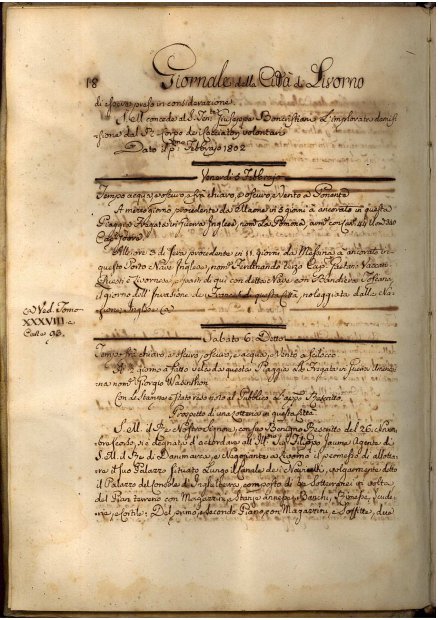 18 Giornale della Città di Livorno
di esser preso in considerazione.
S. M. concede al Ten.te Giuseppe Boncristiani l'implorata dimis
sione dal R. Corpo de Cacciatori volontari
Dato il p.mo Febbrajo 1802
Venerdì 5 Febbrajo
Tempo acqua, e oscuro, e fra chiaro, e oscuro, e vento a Ponente
A mezzogiorno procedente da Maone in 5 giorni è ancorato in questa
Piaggia Fregata in guerra Inglese, nom.e La Pomona, con Can. 44 Uom. 300
Alle ore 3 di sera procedente in 11 giorni da Messina è ancorato in
questo Porto Nave Inglese, nom.e Ferdinando Terzo Cap.
Livornese, partì di qui con detta Nave con Bandiera Toscana
il giorno dell'invasione de Francesi di questa Città, noleggiata dalla Na
zione Inglese (a
(a Ved. Tomo
XXXVIII a
Carte 98.
Sabato 6. Detto
Tempo fra chiaro, e oscuro, oscuro, e acqua, e vento a Scilocco
A giorno à fatto vela da questa Piaggia la Fregata in guerra America
na nom.e Giorgio Wasinthon
Con le stampe è stato reso noto al Pubblico, L'appo Rescritto.
Prospetto di una Lotteria in questa Città
S. M. il Re Nostro Signore, con suo Benigno Rescritto del 26. chiaro
scorso, si è degnato d'accordare all' Ill.mo Sig. Filippo Agente di
S. M. il Re di Danimarca, e Negoziante a Livorno il permesso di allotta
re il suo Palazzo situato Lungo il Canale de' Navicelli, volgarmente detto
il Palazzo del Console di Inghilterra, composto di tre Sotterranei in volta
del Pian terreno con Magazzini, e Stanze annesse, Banchi, Rimesse, Scude
rie, e Cortile: Del primo, e secondo Piano, con Magazzini, e Soffitte, due